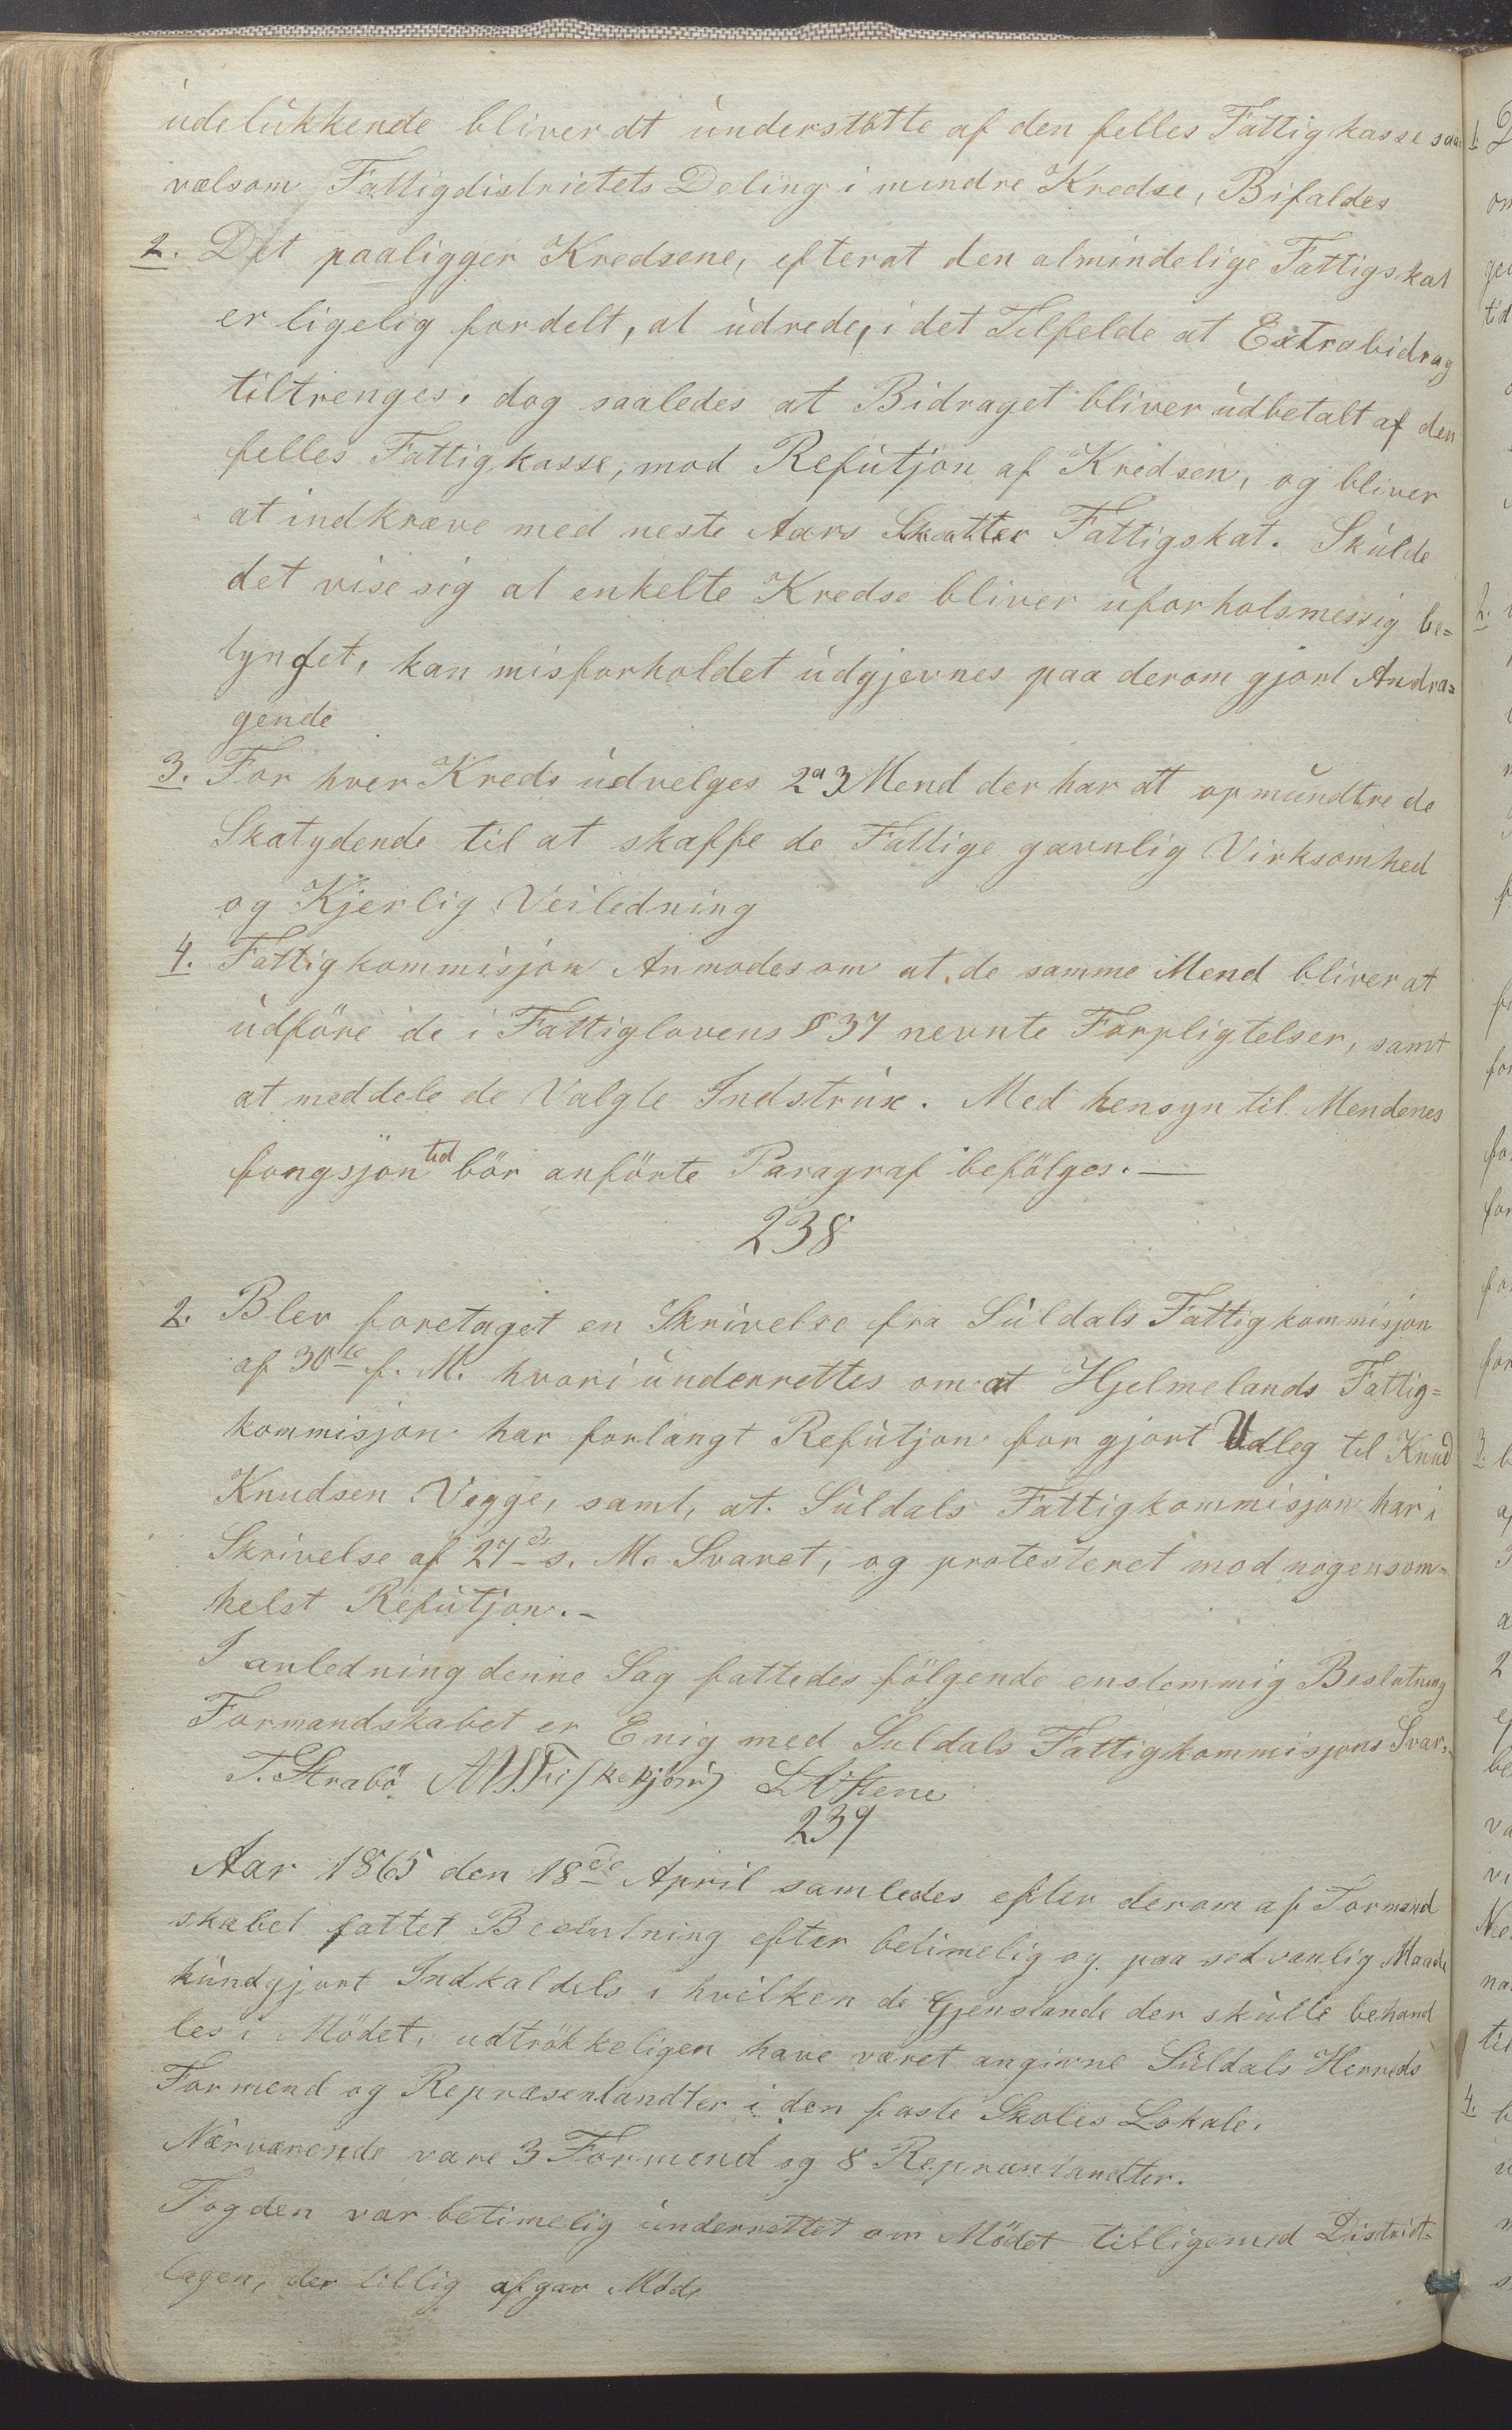 udelukkende bliver dt understøtte af den felles Fattigkasse saa-
velsom Fattigdistrietets Deling i mindre Kredse, Bifaldes
2. Det paaligger Kredsene, efterat den almindelige Fattigskat
er ligelig fordelt, at udrede, i det Tilfelde at Extrabidrag
tiltrenges, dog saaledes at Bidraget bliver udbetalt af den
felles Fattigkasse, mod Refutjon af Kredsen, og bliver
at indkræve med neste Aars Skatter Fattigskat. Skulde
det vise sig at enkelte Kredse bliver uforholsmessig be=
tynget, kan misforholdet udgjevnes paa derom gjort Andra=
gende
3. For hver Kreds udvelges 2 a 3 Mend der har at opmundtre de
Skatydende til at skaffe de Fattige gavnlig Virksomhed
og Kjerlig Veiledning
4. Fattigkommisjon Anmodes om at de samme Mend bliver at
udföre de i Fattiglovens § 37 nevnte Forpligtelser, samt
at meddele de Valgte Indstrux. Med hensyn til Mendenes
fongsjon tid bör anförte Paragraf befölges. —
238
2. Blev foretaget en Skrivelse fra Suldals Fattigkommisjon
af 30te f. M. hvori underrettes om at Hjelmelands Fattig=
kommisjon har forlangt Refutjon for gjort Udleg til Knud
Knudsen Vegge, samt, at Suldals Fattigkommisjon har i
Skrivelse af 27de s. M. Svaret, og protesteret mod nogensom=
helst Refutjon. –
I anledning denne Sag fattedes fölgende enstemmig Beslutning
Formandskabet er Enig med Suldals Fattigkommisjons Svar.
T. Strabö
239
Aar 1865 den 18de April samledes efter derom af Formand
skabet fattet Beslutning efter betimelig og paa sedvanlig Maade
kundgjort Indkaldels i hvilken de Gjenstande der skulle behand
les i Mödet, udtrökkeligen have været angivne Suldals Herreds
Formend og Repræsentandter i den faste Skoles Lokale.
Nærværende vare 3 Formend og 8 Repræntandter.
Fogden var betimelig underrettet om Mödet tilligemed Distrikt=
lægen, der tillig afgav Möde